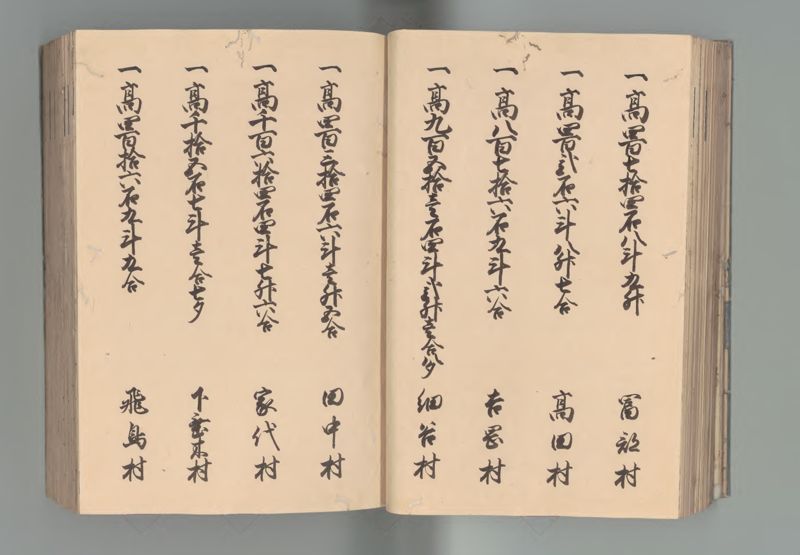 一高四百七拾四石八斗九升 冨部村
一高四百弐石六斗八升七合 高田村
一高八百七拾六石九斗六合 吉岡村
一高九百五拾壱石四斗升壱合八夕 細谷村
一高四百三拾四石六斗壱升五合 田中村
一高千百六拾四石四斗七升六合 家代村
一高千拾五石七斗壱合七夕 下垂木村
一高四百拾六石九斗九合 飛鳥村